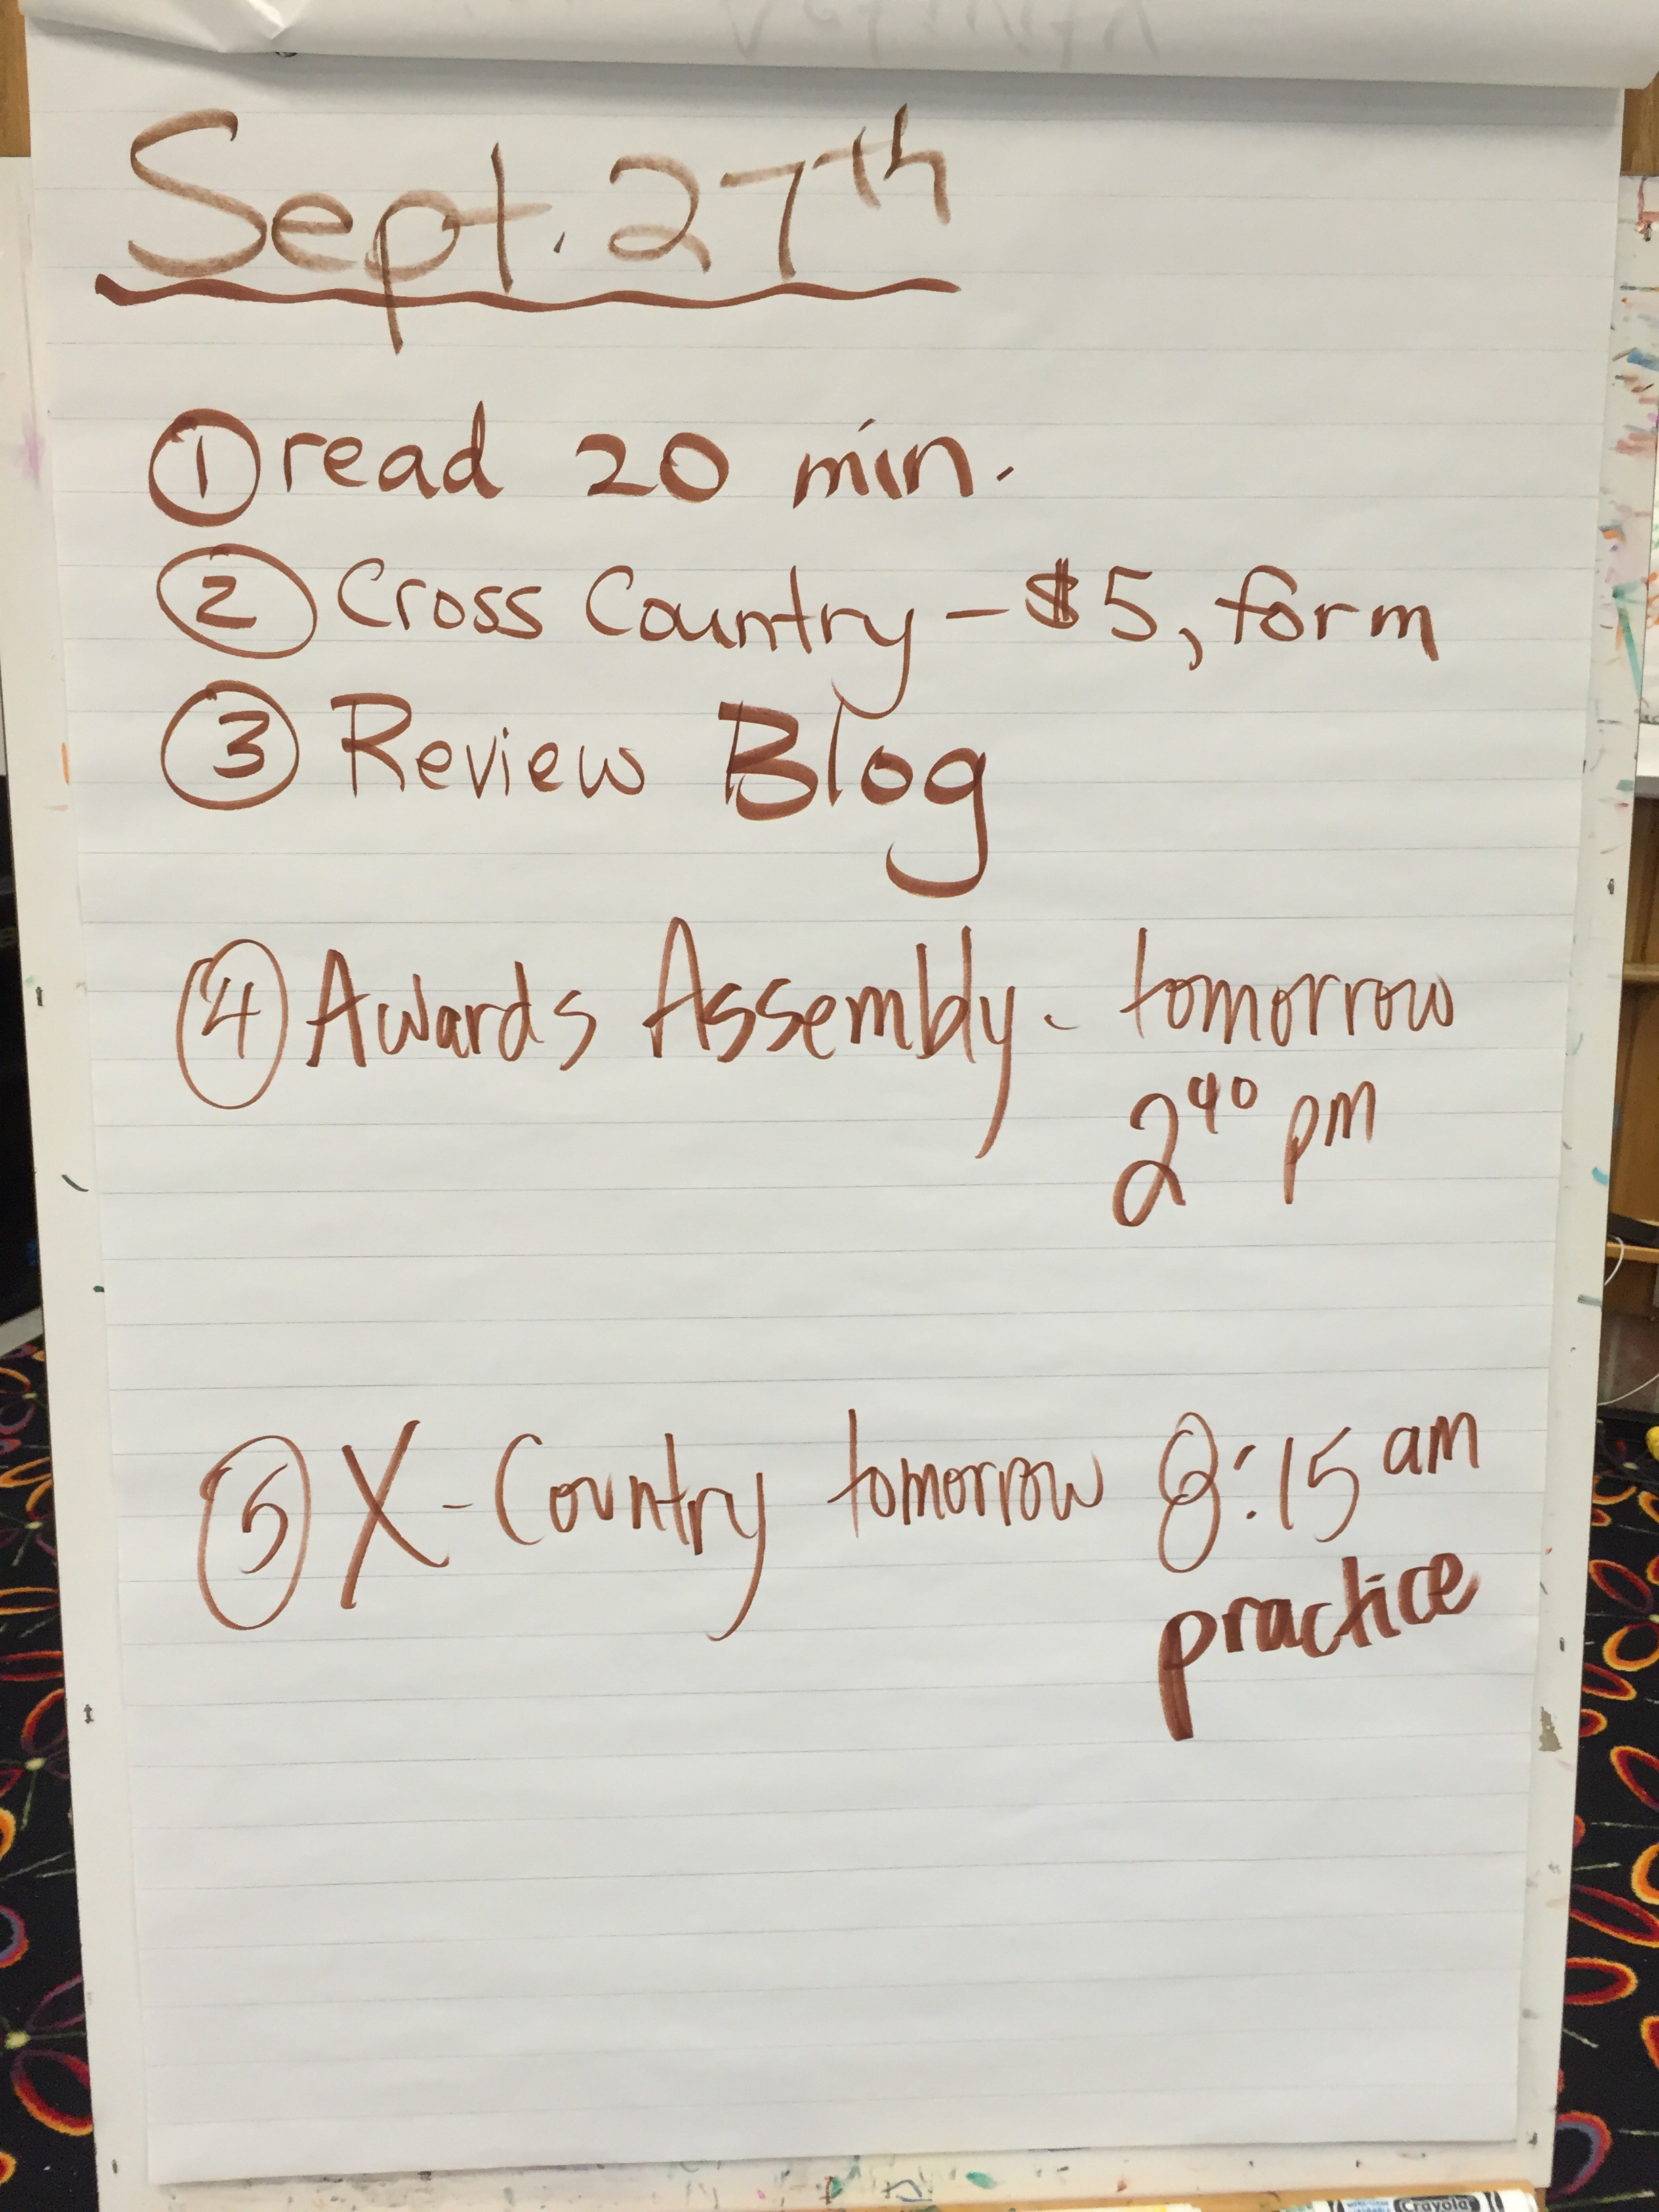 Sept. 27th
① read 20 min.
② Cross Country - $5, form
③ Review Blog
④ Awards Assembly - tomorrow
2⁴⁰ pm
⑤ X-Country tomorrow 8:15 am
practice
Crayola